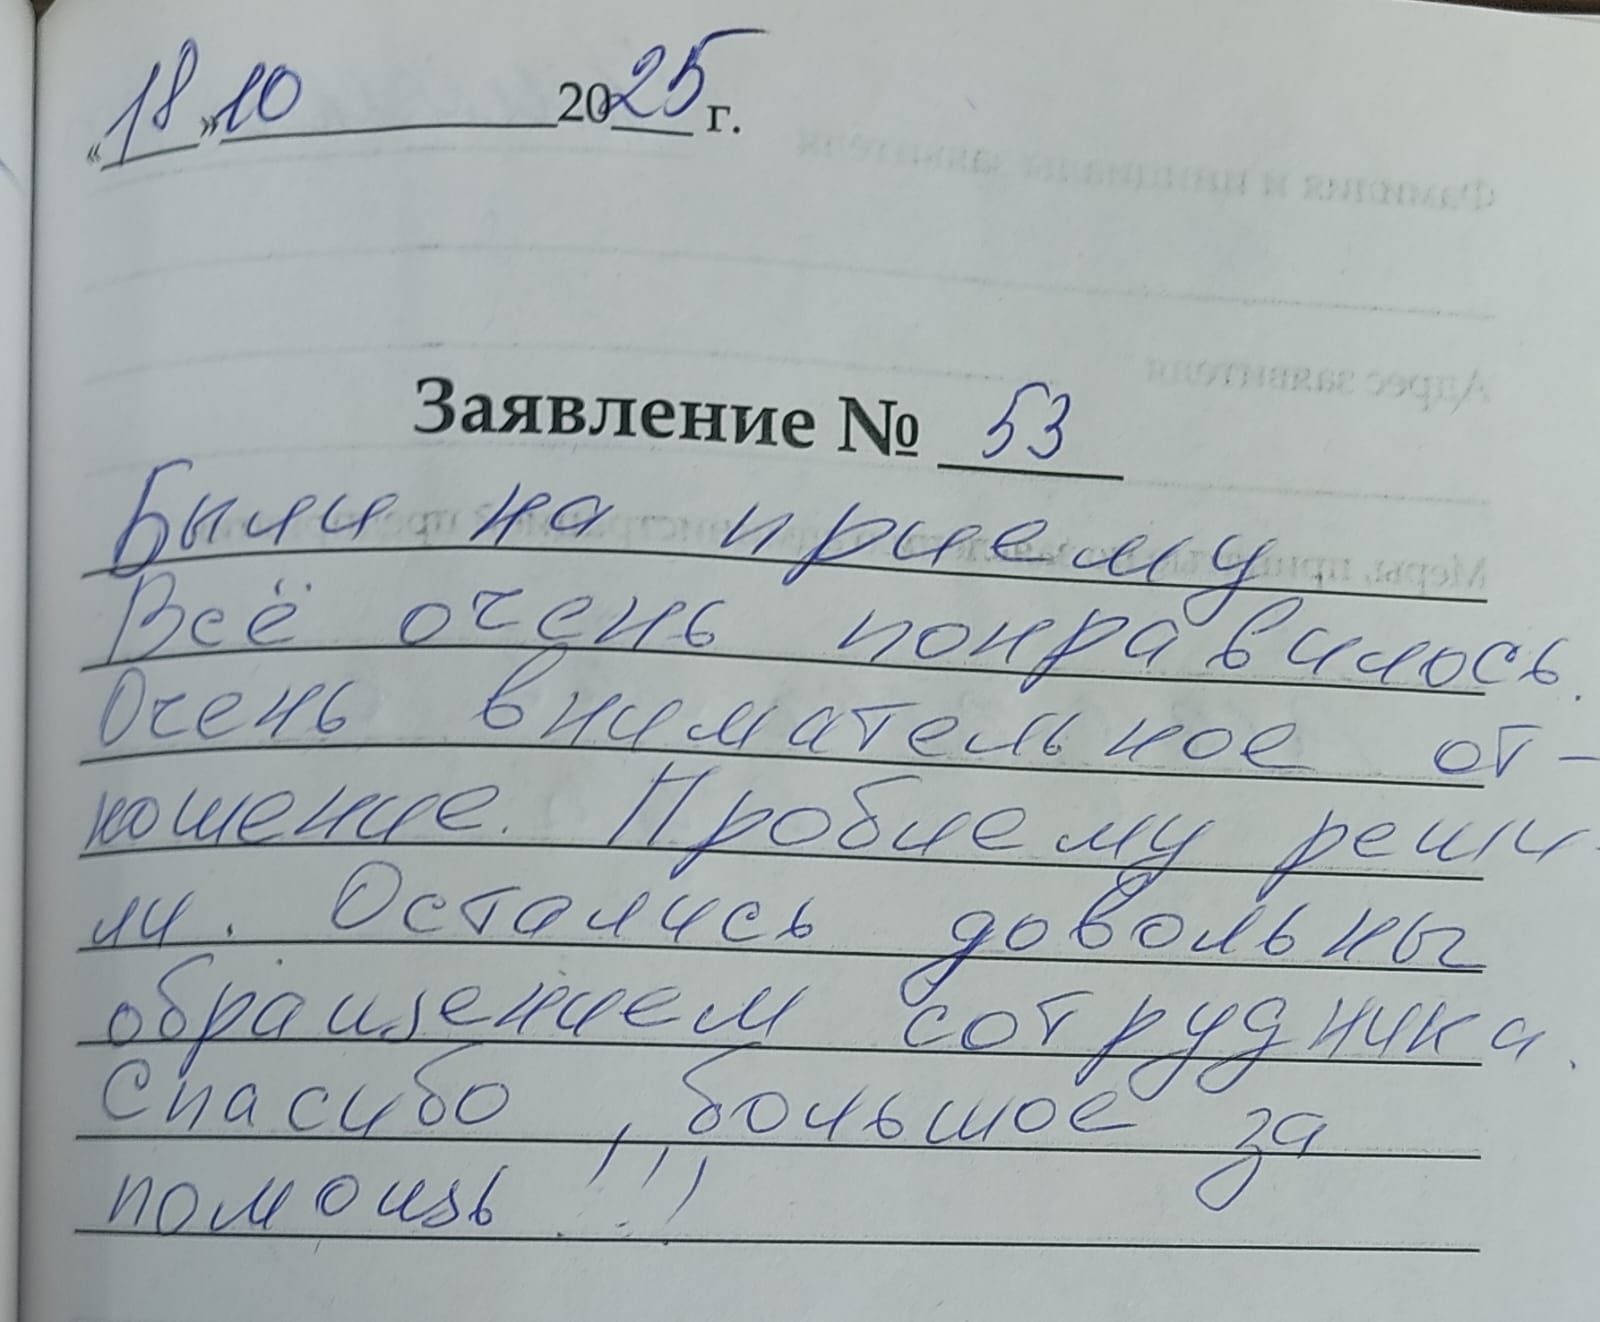 «18» 10 2025 г.
Заявление № 53
Были на приему
Всё очень понравилось.
Очень внимательное от-
ношение. Проблему реши-
ли. Остались довольны
обращением сотрудника.
Спасибо, большое за
помощь!!!